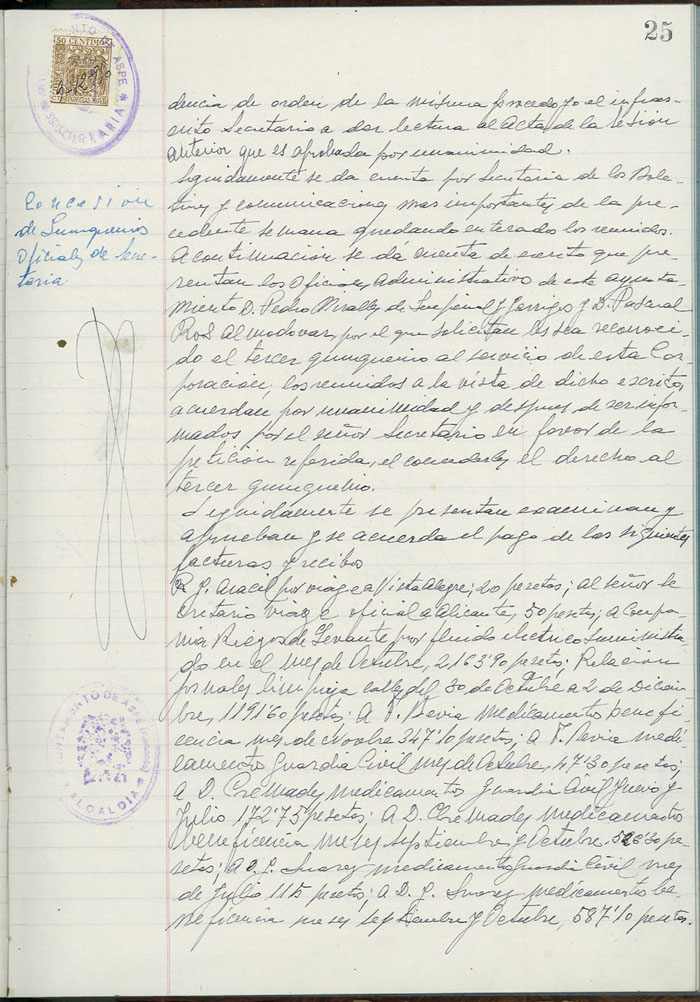 25
50 CENTIMOS
AYUNTAMIENTO DE ASPE
SECRETARIA
Concesion
de Quinquenios
Oficiales de Secre-
taria
dencia de orden de la misma procedo yo el infras-
crito Secretario a dar lectura al acta de la sesion
anterior que es aprobada por unanimidad.
Seguidamente se da cuenta por Secretaria de los Bole-
tines y comunicaciones mas importantes de la pre-
cedente semana quedando enterados los reunidos.
A continuacion se dá cuenta de escrito que pre-
sentan los Oficiales Administrativos de este ayunta-
miento D. Pedro Miralles de y Garrigos y D. Pascual
Ros Almodovar, por el que solicitan les sea reconoci-
do el tercer quinquenio al servicio de esta Cor-
poración; los reunidos a la vista de dicho escrito,
acuerdan por unanimidad y despues de ser infor-
mados por el señor Secretario en favor de la
petición referida, el concederles el derecho al
tercer quinquenio.
Seguidamente se presentan examinan y
aprueban y se acuerda el pago de las siguientes
facturas y recibos
R. P. Aracil por viage a Vista Alegre; 20 pesetas; al señor Se
cretario viage oficial a Alicante, 50 pesetas; a Compa
nia Riegos de Levante por fluido electrico suministra-
do en el mes de Octubre, 2,163'90 pesetas; Relacion
jornales limpieza calles del 30 de Octubre a 2 de Diciem-
bre, 1191'60 pesetas; A F. Bevia medicamentos benefi
cencia mes de Novbre 347'10 pesetas; a F. Bevia medi-
camentos Guardia Civil mes de Octubre, 47'30 pesetas;
a D. Cremades medicamentos Guardia Civil Junio y
Julio 172'75 pesetas; A D. Cremades medicamentos
beneficencia meses septiembre y Octubre 30 pe-
setas; a D. J. Suarez medicamentos Guardia Civil mes
de Julio 115 pesetas; a D. J. Suarez medicamentos be-
neficencia meses septiembre y Octubre, 587'10 pesetas.
AYUNTAMIENTO DE ASPE
ALCALDIA